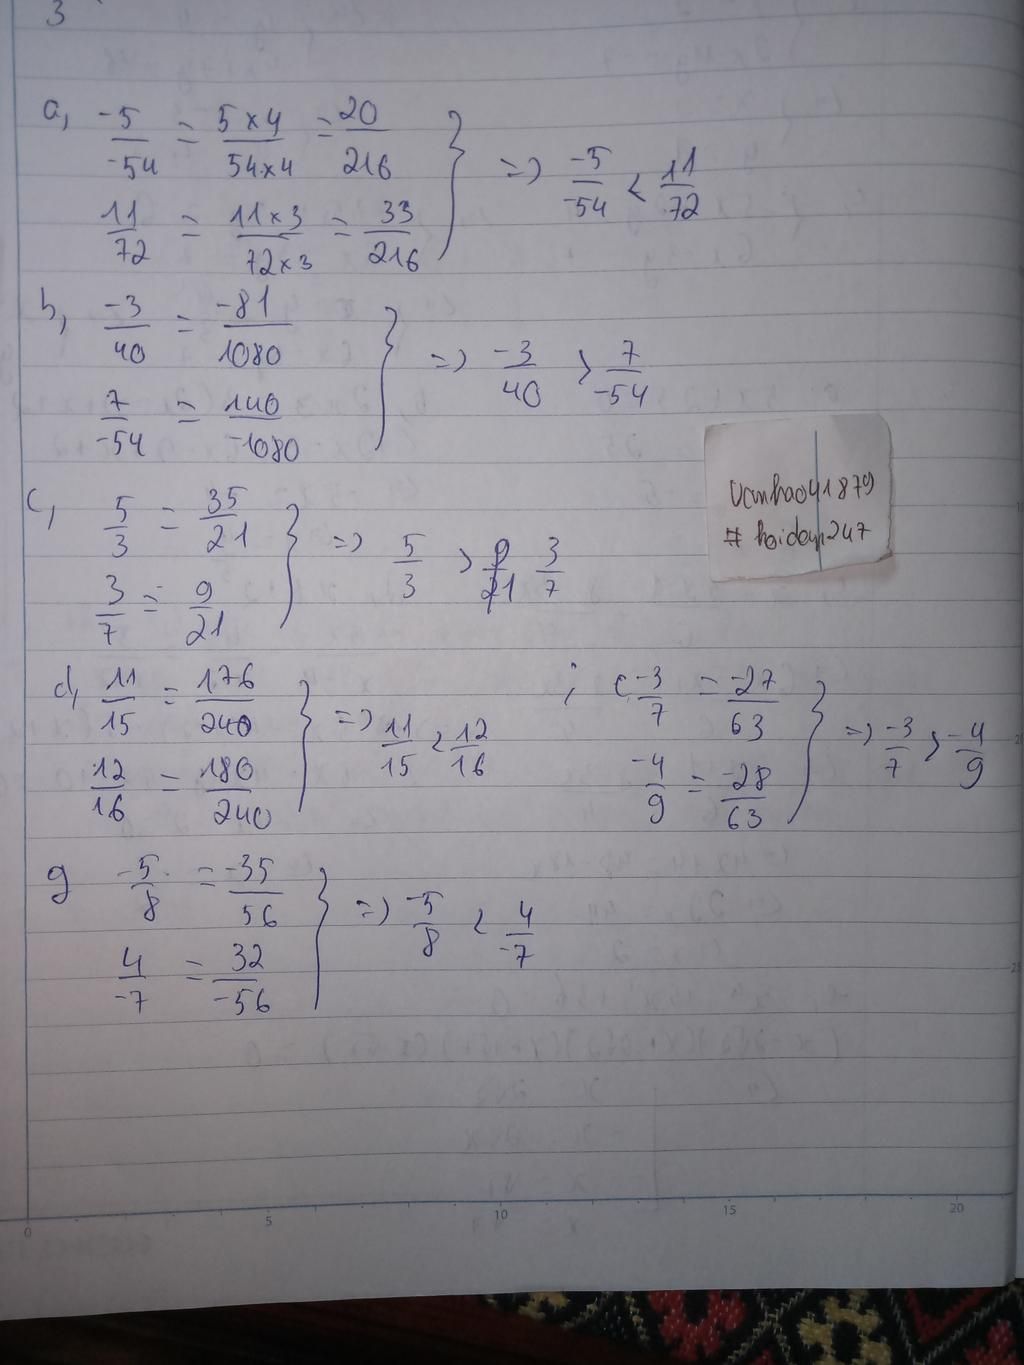 3
a, -5/-54 = 5×4/54×4 = 20/216
11/72 = 11×3/72×3 = 33/216
=> -5/-54 < 11/72
b, -3/40 = -81/1080
7/-54 = 140/-1080
=> -3/40 > 7/-54
c, 5/3 = 35/21
3/7 = 9/21
=> 5/3 > 3/7
d, 11/15 = 176/240
12/16 = 180/240
=> 11/15 < 12/16
; c -3/7 = -27/63
-4/9 = -28/63
=> -3/7 > -4/9
g -5/8 = -35/56
4/-7 = 32/-56
=> -5/8 < 4/-7
# hoidap247
0 5 10 15 20